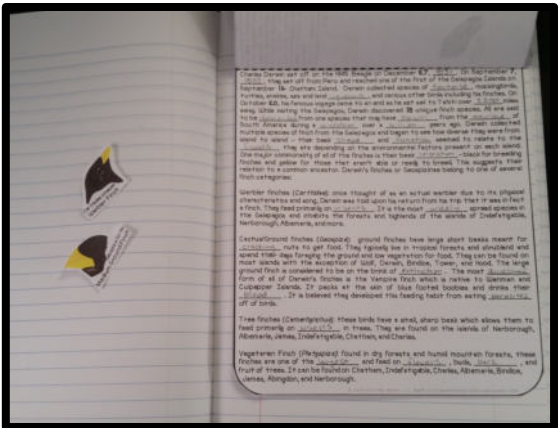 Charles Darwin set off on the HMS Beagle on December 27, 1831. On September 7,
1835, they set off from Peru and reached one of the first of the Galapagos Islands on
September 15- Chatham Island. Darwin collected species of mockingbirds,
and various other birds including his finches. On
October 20, his famous voyage came to an end as he set sail to Tahiti over miles
away. While visiting the Galapagos, Darwin discovered unique finch species. All are said
to be from one species that may have from the of
South America during a over a years ago. Darwin collected
multiple species of finch from the Galapagos and began to see how diverse they were from
island to island - their beak and seemed to relate to the
they ate depending on the environmental factors present on each island.
One major commonality of all of the finches is their beak - black for breeding
finches and yellow for those that aren't able or ready to breed. This suggests their
relation to a common ancestor. Darwin's finches or Geospizines belong to one of several
finch categories:
Warbler finches (Certhidea): once thought of as an actual warbler due to its physical
characteristics and song, Darwin was told upon his return from his trip that it was in fact
a finch. They feed primarily on insects. It is the most spread species in
the Galapagos and inhabits the forests and highlands of the islands of Indefatigable,
Narborough, Albemarle, and more.
Cactus/Ground finches (Geospiza): ground finches have large short beaks meant for
nuts to get food. They typically live in tropical forests and shrubland and
spend their days foraging the ground and low vegetation for food. They can be found on
most islands with the exception of Wolf, Darwin, Bindloe, Tower, and Hood. The large
ground finch is considered to be on the brink of extinction. The most
form of all of Darwin's finches is the Vampire finch which is native to Wenman and
Culpepper Islands. It pecks at the skin of blue footed boobies and drinks their
blood. It is believed they developed this feeding habit from eating parasites
off of birds.
Tree finches (Camarhynchus): these birds have a small, sharp beak which allows them to
feed primarily on insects in trees. They are found on the islands of Narborough,
Albemarle, James, Indefatigable, Chatham, and Charles.
Vegetarian Finch (Platyspiza) found in dry forests and humid mountain forests, these
finches are one of the largest and feed on flowers, buds, and
fruit of trees. It can be found on Chatham, Indefatigable, Charles, Albemarle, Bindloe,
James, Abingdon, and Narborough.